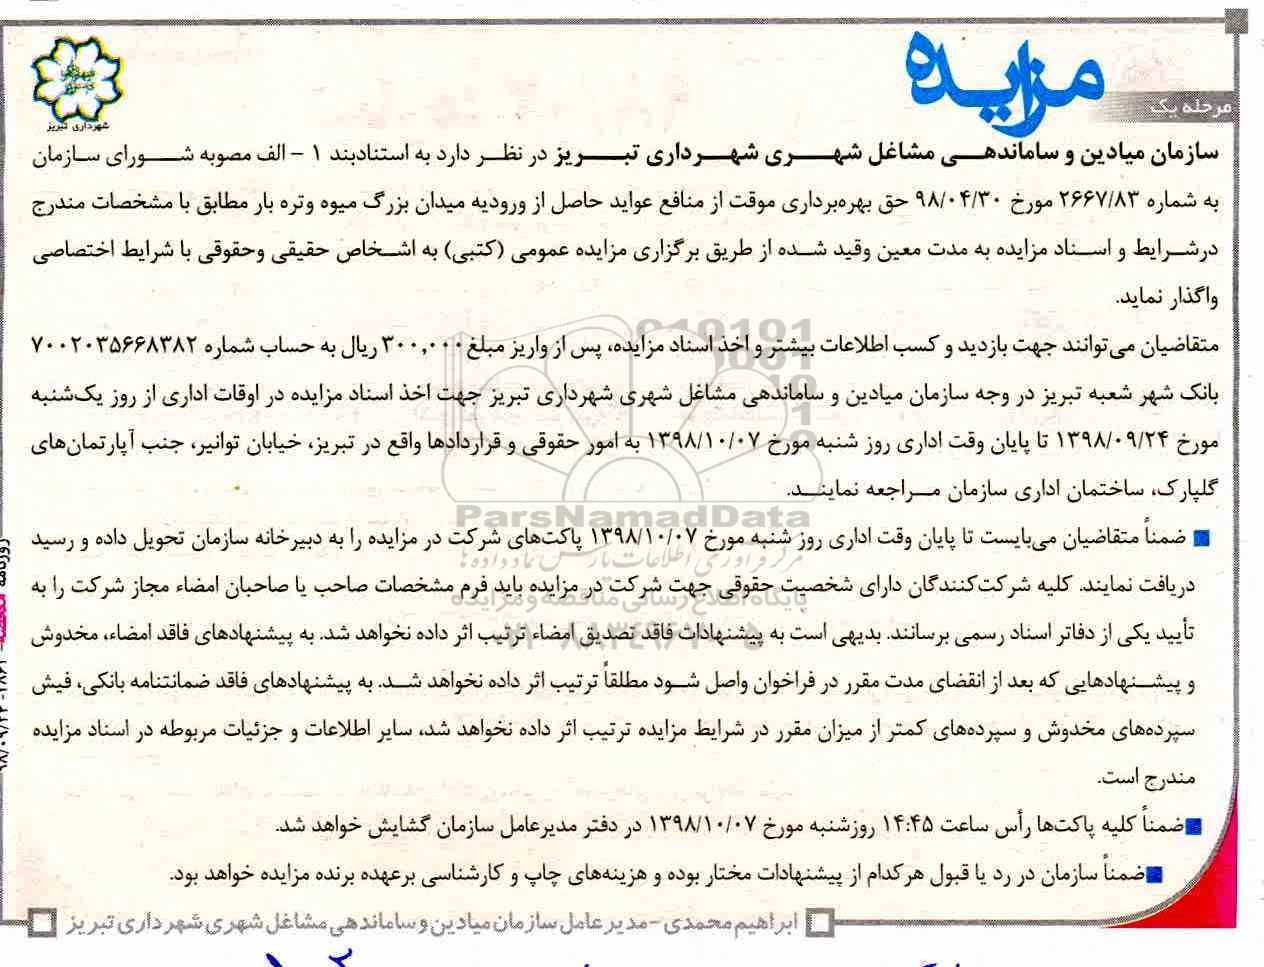 مزایده
مرحله یک
شهرداری تبریز
سازمان میادین و ساماندهی مشاغل شهری شهرداری تبریز در نظر دارد به استنادبند ۱ - الف مصوبه شورای سازمان
به شماره ۲۶۶۷/۸۳ مورخ ۹۸/۰۴/۳۰ حق بهره‌برداری موقت از منافع عواید حاصل از ورودیه میدان بزرگ میوه وتره بار مطابق با مشخصات مندرج
درشرایط و اسناد مزایده به مدت معین وقید شده از طریق برگزاری مزایده عمومی (کتبی) به اشخاص حقیقی وحقوقی با شرایط اختصاصی
واگذار نماید.
متقاضیان می‌توانند جهت بازدید و کسب اطلاعات بیشتر و اخذ اسناد مزایده، پس از واریز مبلغ ۳۰۰,۰۰۰ ریال به حساب شماره ۷۰۰۲۰۳۵۶۶۸۳۸۲
بانک شهر شعبه تبریز در وجه سازمان میادین و ساماندهی مشاغل شهری شهرداری تبریز جهت اخذ اسناد مزایده در اوقات اداری از روز یک‌شنبه
مورخ ۱۳۹۸/۰۹/۲۴ تا پایان وقت اداری روز شنبه مورخ ۱۳۹۸/۱۰/۰۷ به امور حقوقی و قراردادها واقع در تبریز، خیابان توانیر، جنب آپارتمان‌های
گلپارک، ساختمان اداری سازمان مراجعه نمایند.
ضمناً متقاضیان می‌بایست تا پایان وقت اداری روز شنبه مورخ ۱۳۹۸/۱۰/۰۷ پاکت‌های شرکت در مزایده را به دبیرخانه سازمان تحویل داده و رسید
دریافت نمایند. کلیه شرکت‌کنندگان دارای شخصیت حقوقی جهت شرکت در مزایده باید فرم مشخصات صاحب یا صاحبان امضاء مجاز شرکت را به
تأیید یکی از دفاتر اسناد رسمی برسانند. بدیهی است به پیشنهادات فاقد تصدیق امضاء ترتیب اثر داده نخواهد شد. به پیشنهادهای فاقد امضاء، مخدوش
و پیشنهادهایی که بعد از انقضای مدت مقرر در فراخوان واصل شود مطلقاً ترتیب اثر داده نخواهد شد. به پیشنهادهای فاقد ضمانتنامه بانکی، فیش
سپرده‌های مخدوش و سپرده‌های کمتر از میزان مقرر در شرایط مزایده ترتیب اثر داده نخواهد شد، سایر اطلاعات و جزئیات مربوطه در اسناد مزایده
مندرج است.
ضمناً کلیه پاکت‌ها رأس ساعت ۱۴:۴۵ روزشنبه مورخ ۱۳۹۸/۱۰/۰۷ در دفتر مدیرعامل سازمان گشایش خواهد شد.
ضمناً سازمان در رد یا قبول هرکدام از پیشنهادات مختار بوده و هزینه‌های چاپ و کارشناسی برعهده برنده مزایده خواهد بود.
ابراهیم محمدی - مدیر عامل سازمان میادین و ساماندهی مشاغل شهری شهرداری تبریز
ParsNamadData
مرکز فرآوری اطلاعات پارس نماد داده ها
پایگاه اطلاع رسانی مناقصه و مزایده